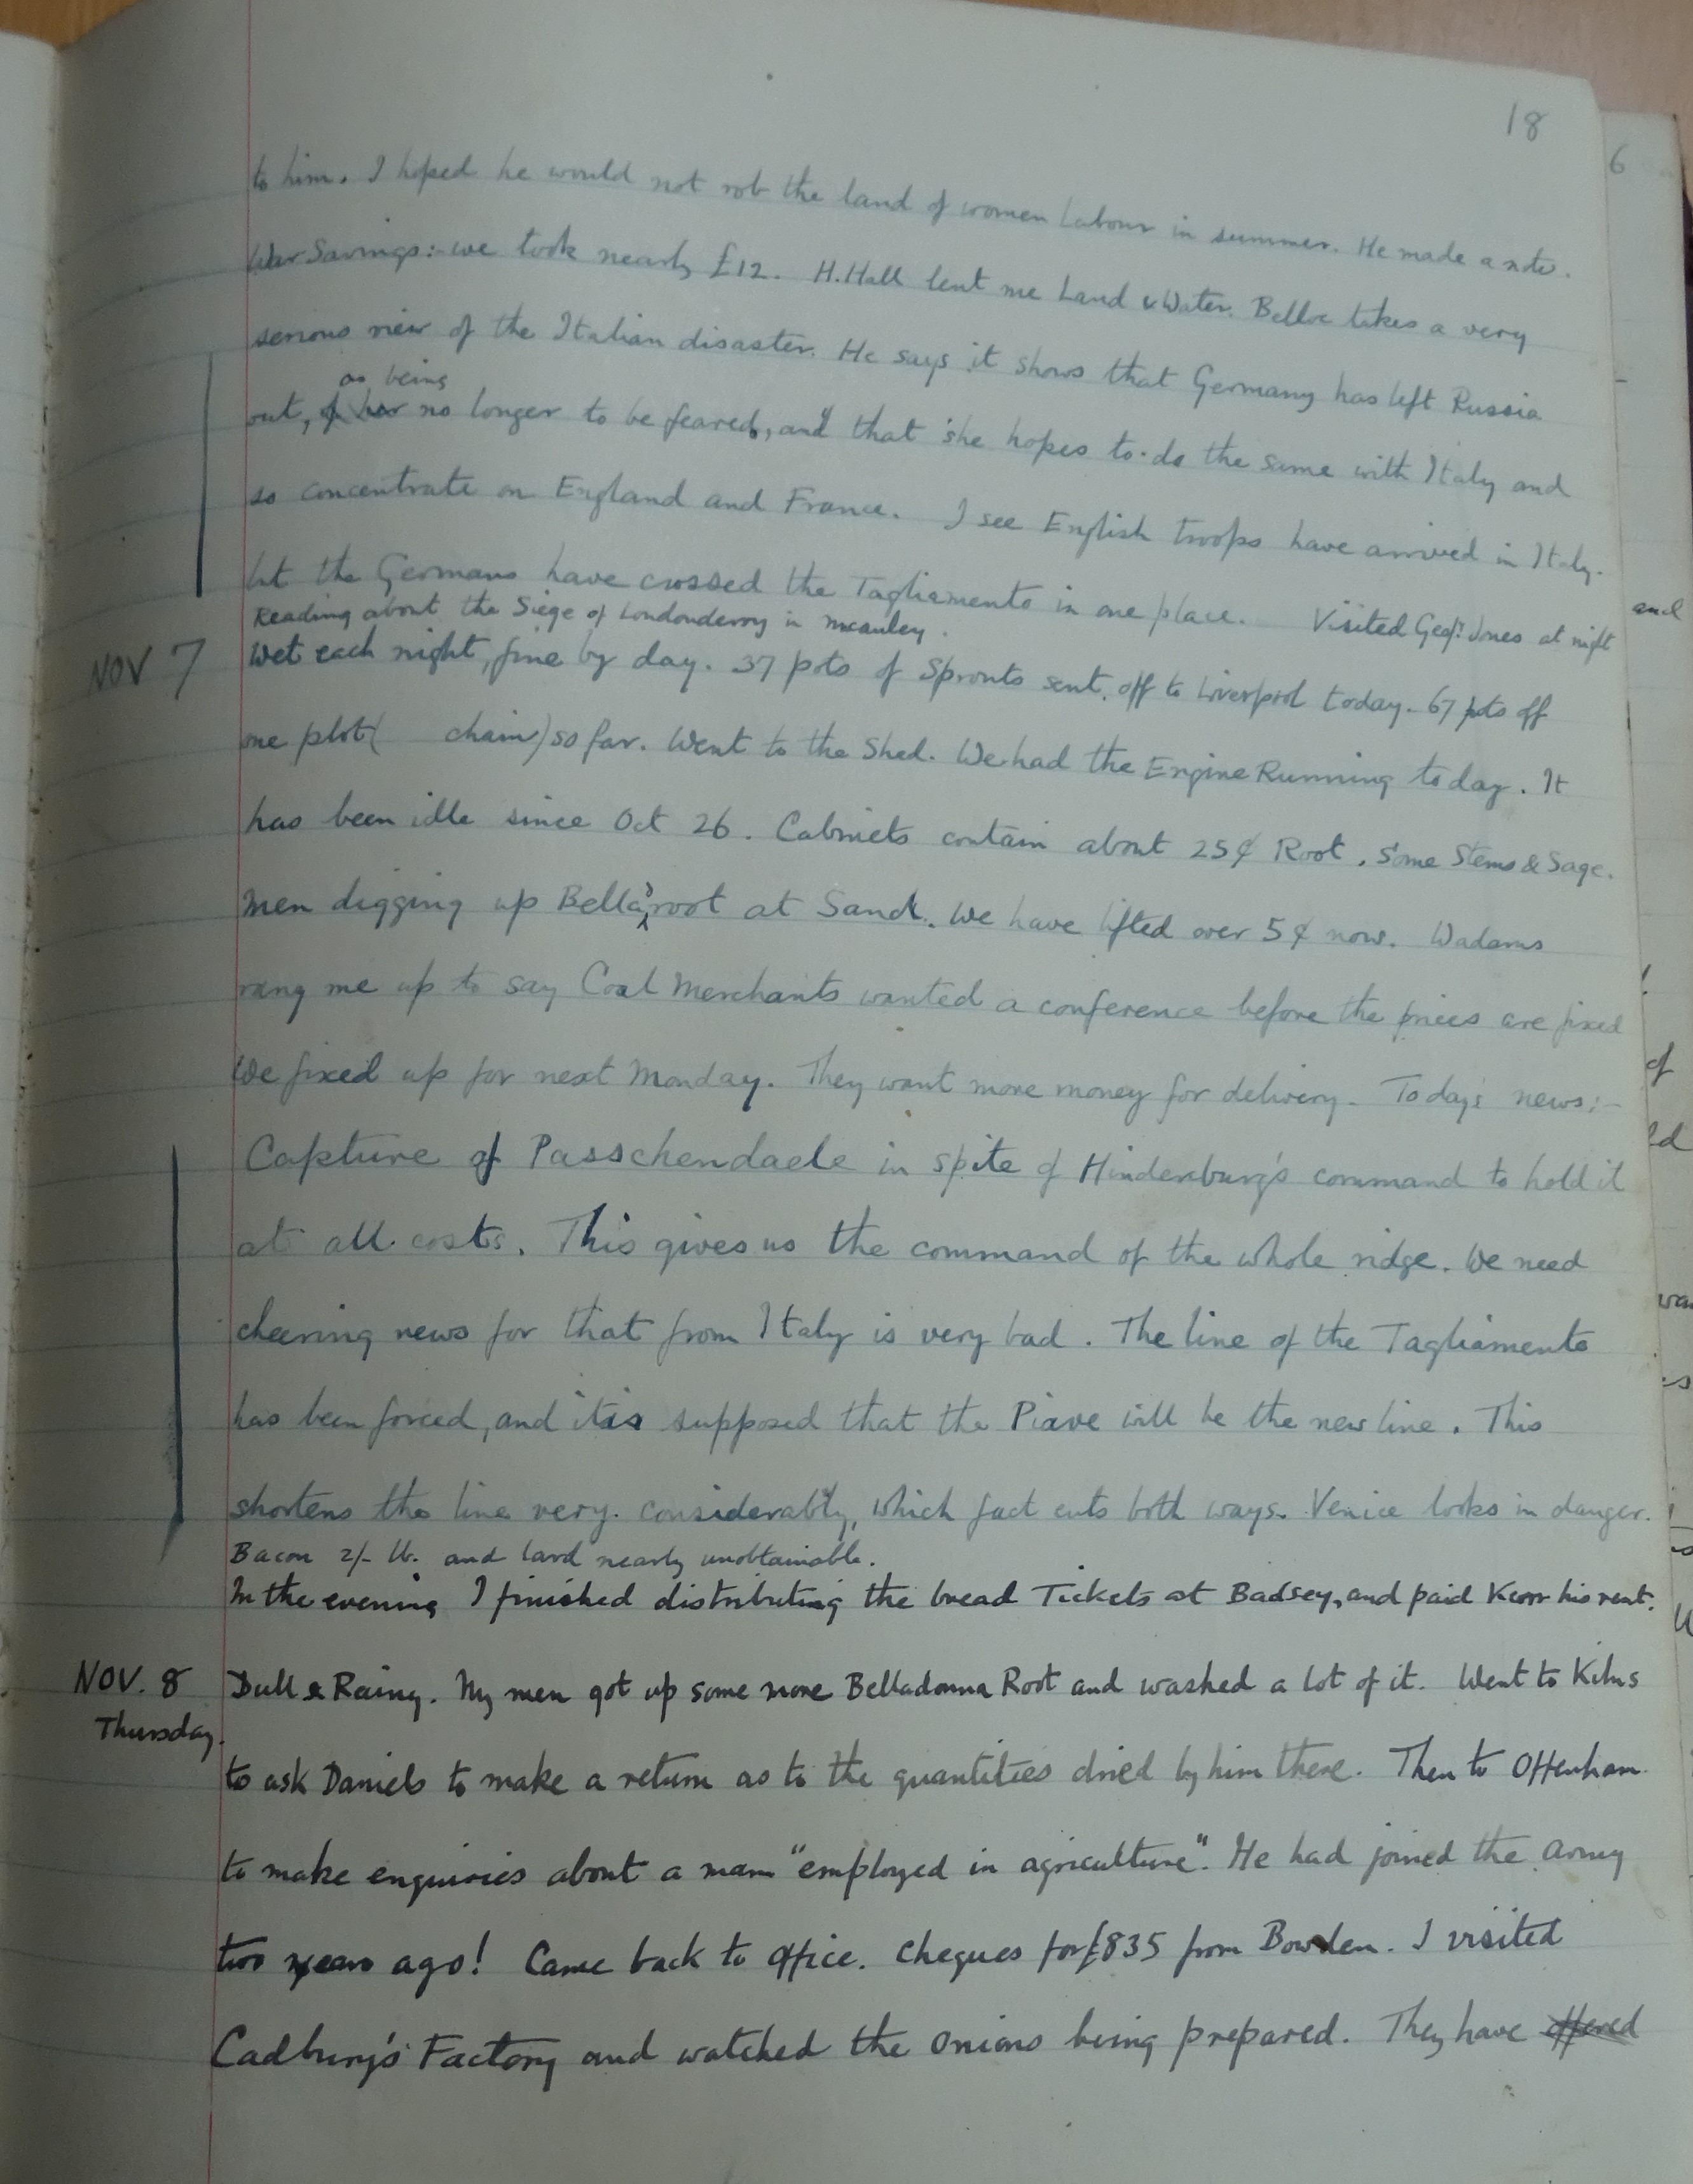 18
to him. I hoped he would not rob the land of women Labour in summer. He made a note.
War Savings:- we took nearly £12. H. Hall lent me Land & Water. Belloc takes a very
serious view of the Italian disaster. He says it shows that Germany has left Russia
as being
out, no longer to be feared, and that she hopes to do the same with Italy and
so concentrate on England and France. I see English troops have arrived in Italy.
but the Germans have crossed the Tagliamento in one place. Visited Geof: Jones at night
Reading about the Siege of Londonderry in Mcauley.
NOV 7 Wet each night, fine by day. 37 pots of Sprouts sent off to Liverpool today. 67 pots off
one plot ( chain) so far. Went to the Shed. We had the Engine Running today. It
has been idle since Oct 26. Cabinets contain about 25¢ Root, some Stems & Sage.
Men digging up Bella: root at Sands. We have lifted over 5¢ now. Wadams
rang me up to say Coal Merchants wanted a conference before the prices are fixed
We fixed up for next Monday. They want more money for delivery. Todays news:-
Capture of Passchendaele in spite of Hindenburg's command to hold it
at all costs. This gives us the command of the whole ridge. We need
cheering news for that from Italy is very bad. The line of the Tagliamento
has been forced, and it is supposed that the Piave will be the new line. This
shortens the line very considerably, which fact cuts both ways. Venice looks in danger.
Bacon 2/- lb. and lard nearly unobtainable.
In the evening I finished distributing the bread Tickets at Badsey, and paid Kerr his rent.
NOV. 8 Dull & Rainy. My men got up some more Belladonna Root and washed a lot of it. Went to Kilns
Thursday.
to ask Daniels to make a return as to the quantities dried by him there. Then to Offenham
to make enquiries about a man "employed in agriculture". He had joined the army
two years ago! Came back to office. Cheques for £835 from Bowden. I visited
Cadbury's Factory and watched the onions being prepared. They have offered